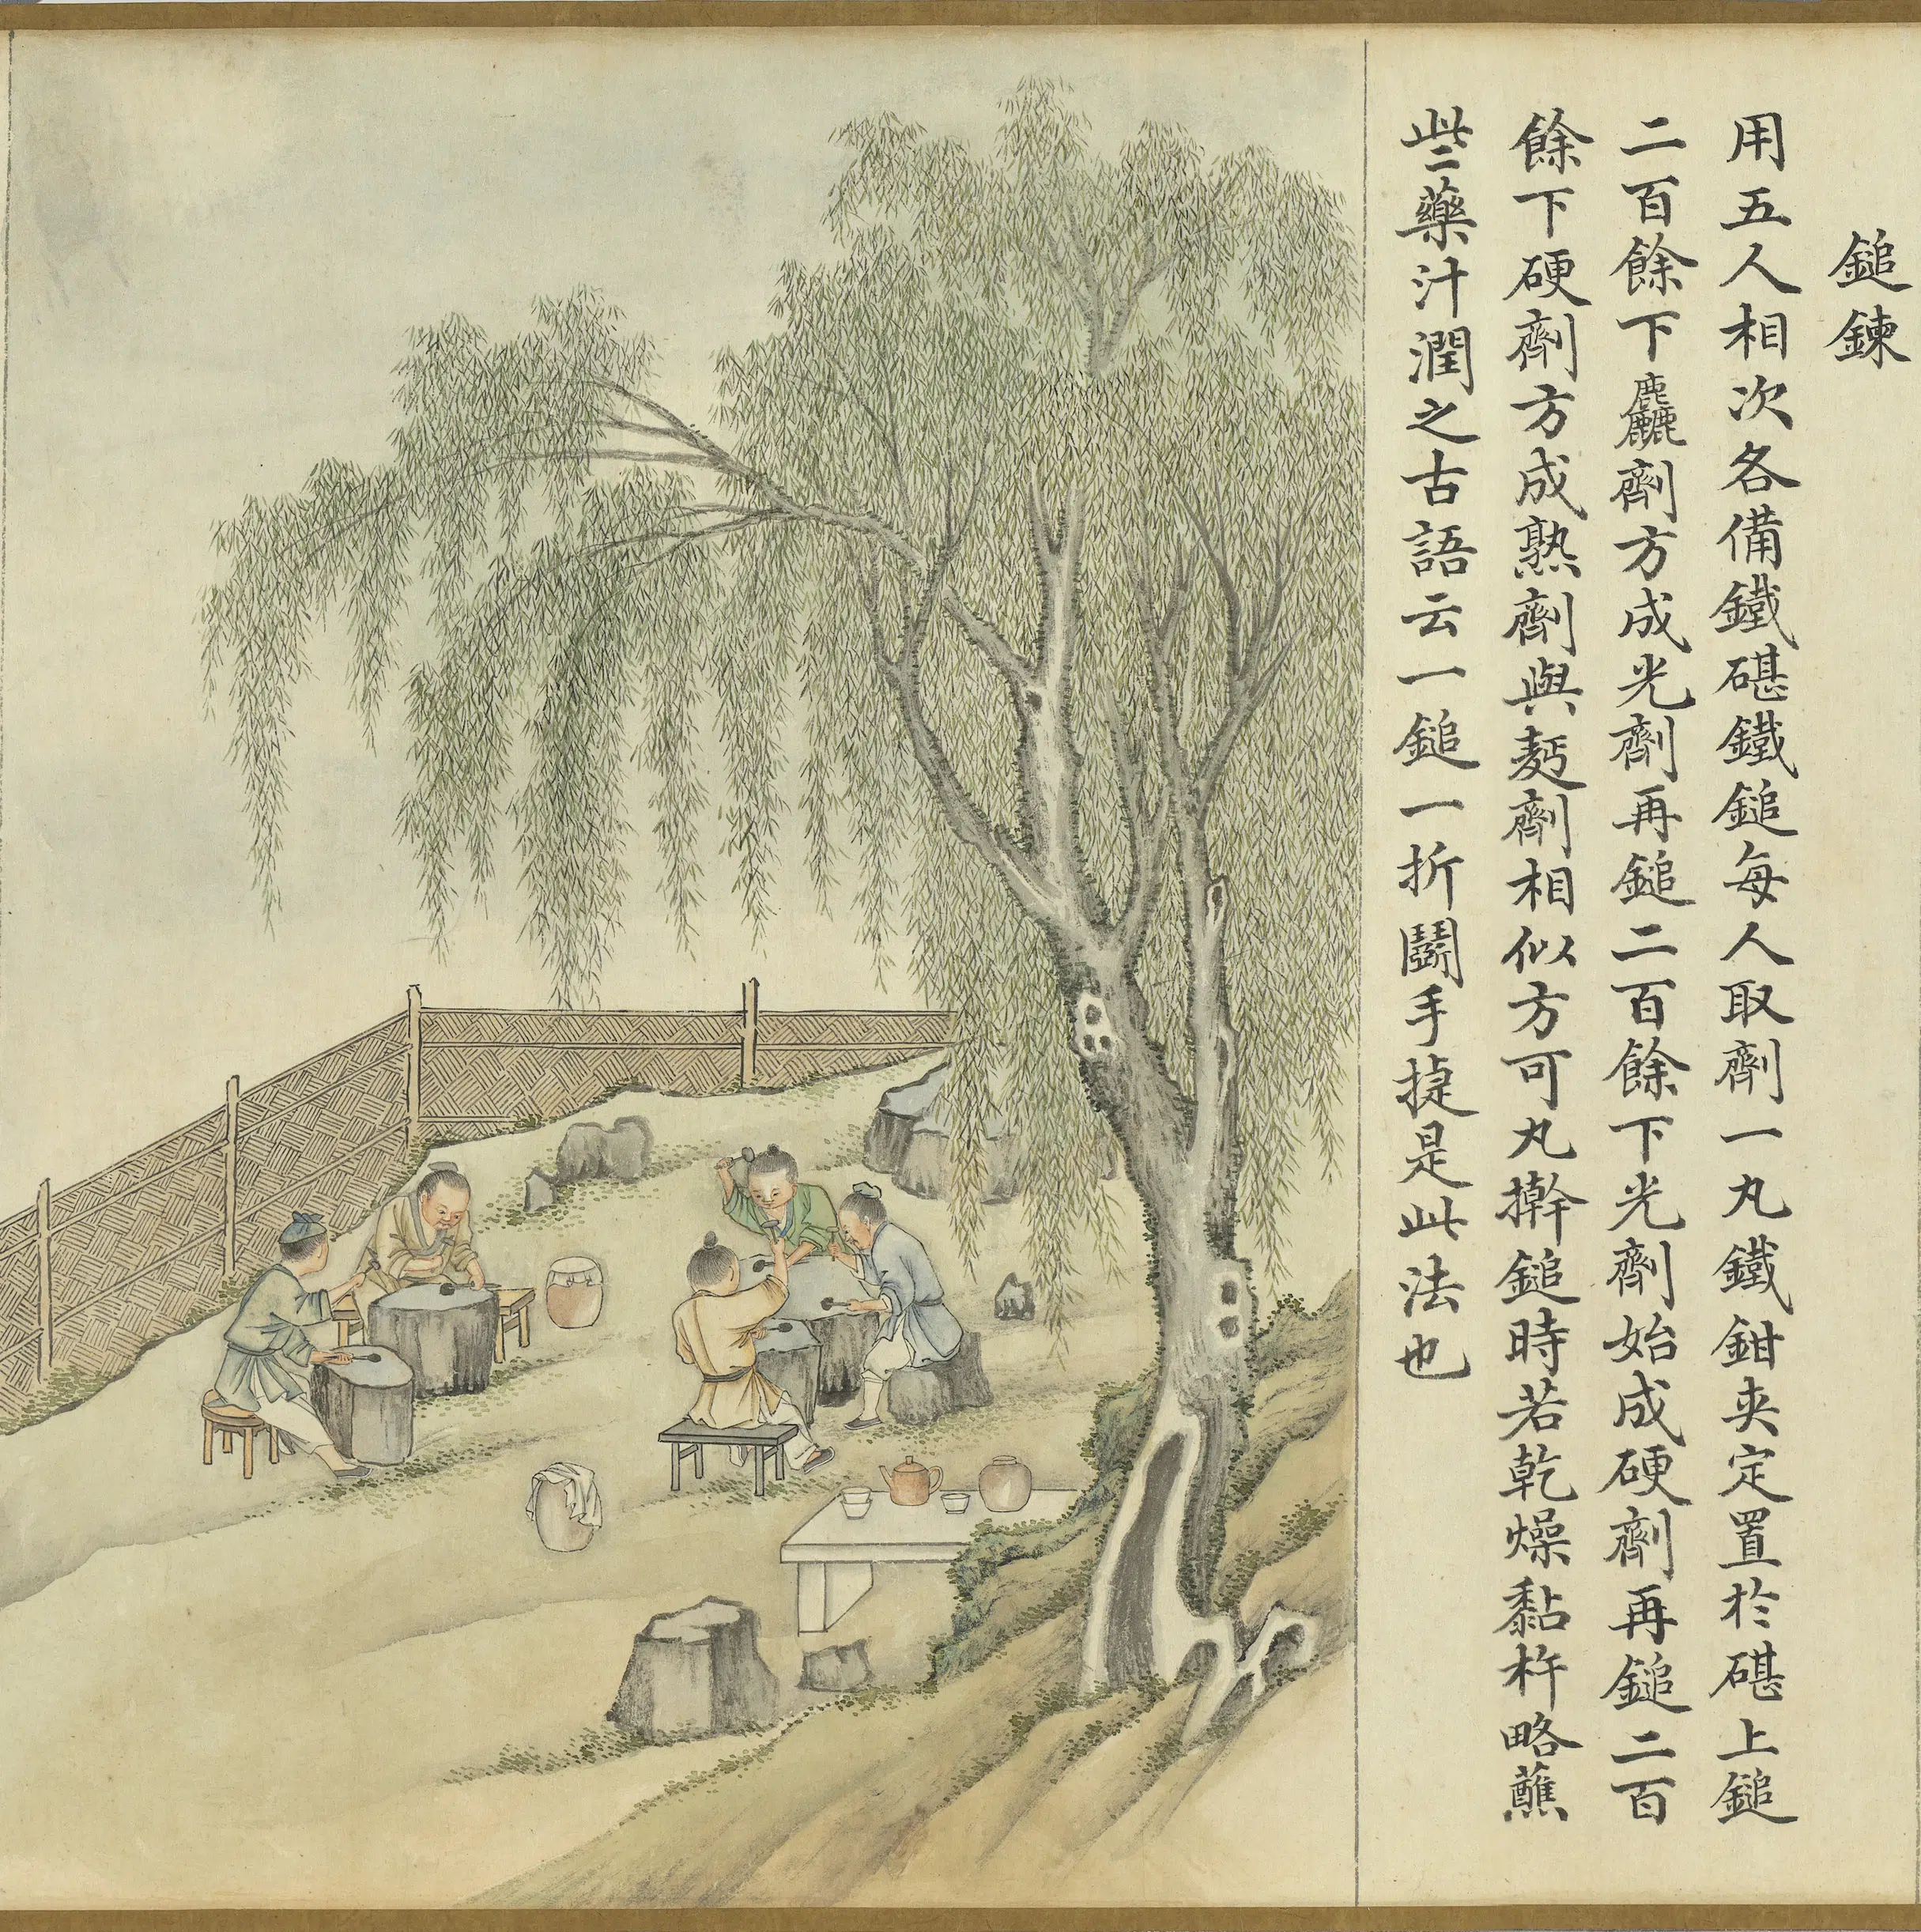 鎚鍊
用五人相次各備鐵碪鐵鎚每人取劑一丸鐵鉗夾定置於碪上鎚
二百餘下麤劑方成光劑再鎚二百餘下光劑始成硬劑再鎚二百
餘下硬劑方成熟劑與麪劑相似方可丸擀鎚時若乾燥黏杵略蘸
些藥汁潤之古語云一鎚一折鬭手捷是此法也